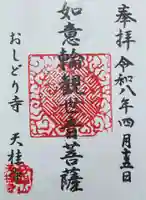 奉拝 令和八年四月十五日
如意輪観世音菩薩
おしどり寺 天桂